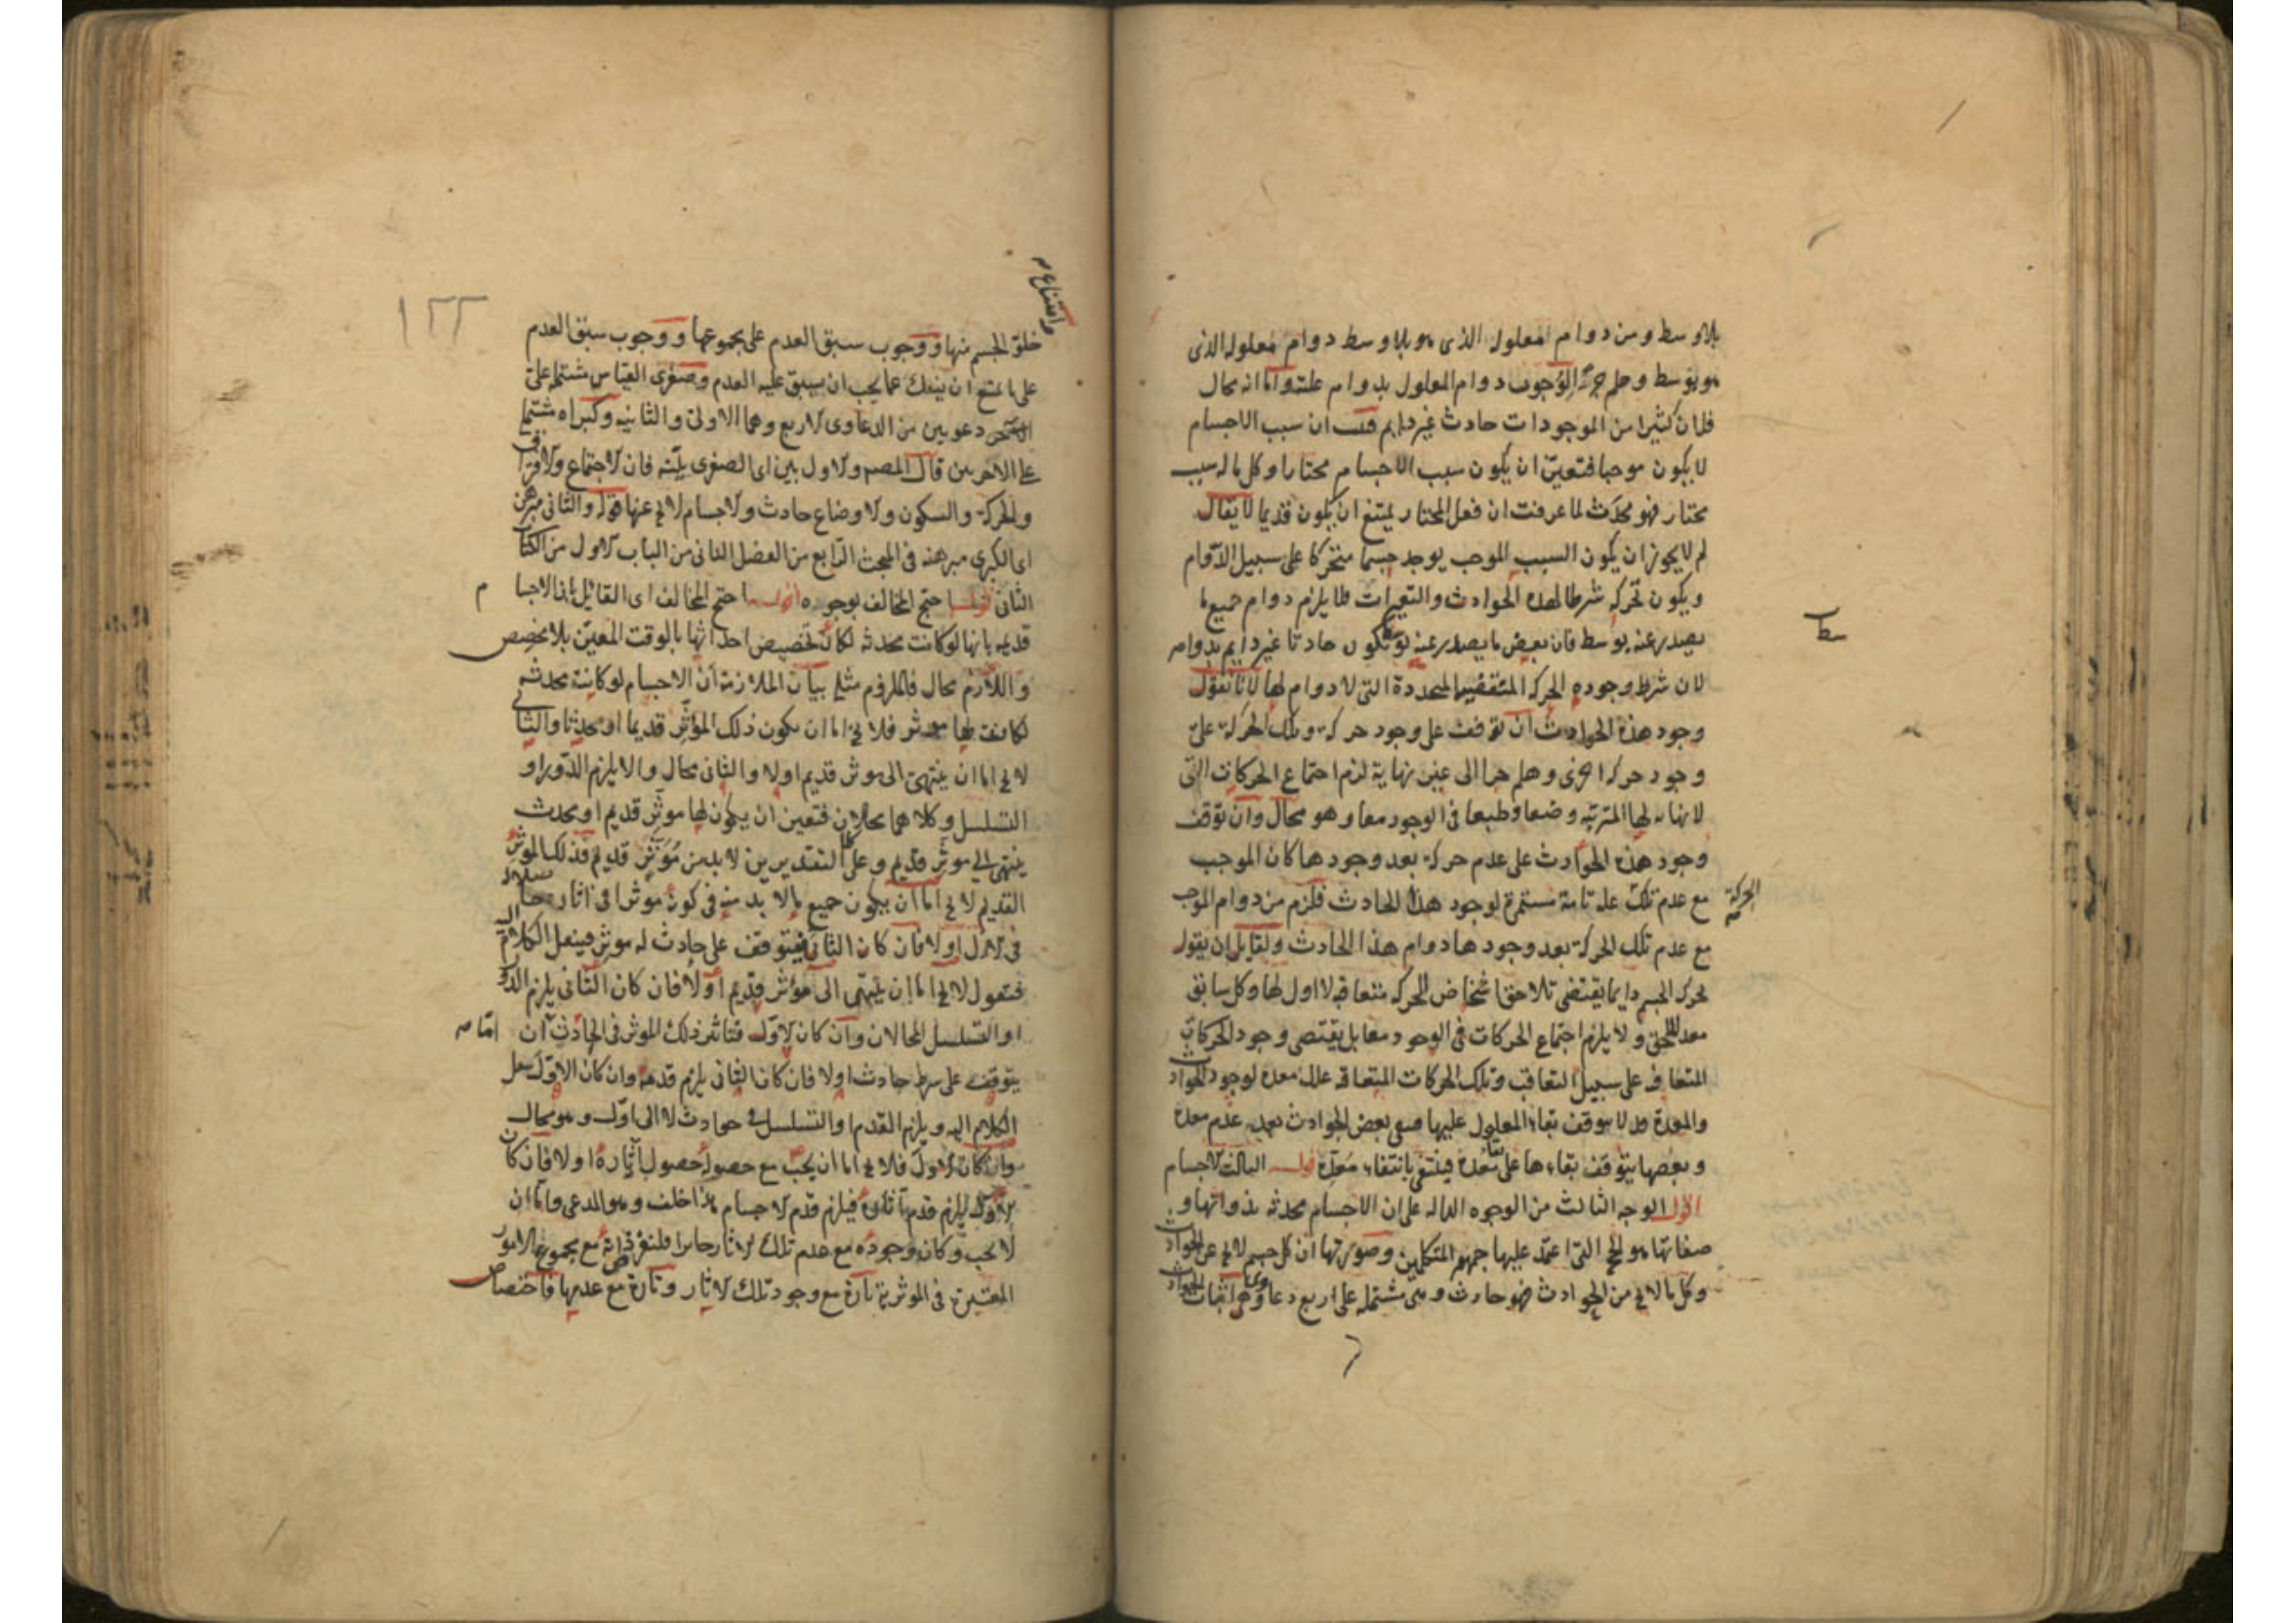 بلا وسط ومن دوام المعلول الذى هو بلا وسط دوام معلوله الذى
هو بوسط وهلم جرًّا لوجوب دوام المعلول بدوام علته واما انه محال
فلان كثيرا من الموجودات حادث غير دايم فثبت ان سبب الاجسام
لا يكون موجبا فتعين ان يكون سبب الاجسام مختارا وكل ما له سبب
مختار فهو محدث لما عرفت ان فعل المختار يمتنع ان يكون قديما لا يقال
لم لا يجوز ان يكون السبب الموجب يوجد جسما متحركا على سبيل الدوام
ويكون تحركه شرطا لهذه الحوادث والتغيرات فلا يلزم دوام جميع ما
يصدر عنه بوسط فان بعض ما يصدر عنه بوسط يكون حادثا غير دايم بدوامه
سط
لان شرط وجوده الحركه المنقضيه المتجددة التى لا دوام لها لانا نقول
وجود هذه الحوادث ان توقف على وجود حركة وتلك الحركة على
وجود حركه اخرى وهلم جرا الى غير نهاية لزم اجتماع الحركات التى
لا نهايه لها المترتبه وضعا وطبعا فى الوجود معا وهو محال وان توقف
وجود هذه الحوادث على عدم حركة بعد وجودها كان الموجب
مع عدم تلك علة تامة مستمرة لوجود هذا الحادث فلزم من دوام الموجب
الحركة
مع عدم تلك الحركة بعد وجودها دوام هذا الحادث ولقايل ان يقول
تحرك الجسم دايما يقتضى تلاحق اشخاص الحركه متعاقبه لا اول لها وكل سابق
معد للاحق ولا يلزم اجتماع الحركات فى الوجود معا بل يقتضى وجود الحركات
المتعاقبه على سبيل التعاقب وتلك الحركات المتعاقبه علل معده لوجود الحوادث
والمعدة قد لا يتوقف بقاء المعلول عليها فبقى بعض الحوادث بعد عدم معده
وبعضها يتوقف بقاءها على معده فينتفى بانتفاء معده قوله الثالث الاجسام
اقول الوجه الثالث من الوجوه الداله على ان الاجسام محدثه بذواتها و
صفاتها هو الحجة التى اعتمد عليها جمهور المتكلمين وصورتها ان كل جسم لا يخ عن الحوادث
وكل ما لا يخ من الحوادث فهو حادث وهى مشتمله على اربع دعاوى اثبات الحوادث
وامتناع
خلو الجسم منها ووجوب سبق العدم على مجموعها ووجوب سبق العدم
١٢٢
على ما يمتنع ان ينفك عما يجب ان يسبق عليه العدم وصغرى القياس مشتملة على
دعويين من الدعاوى الاربع وهما الاولى والثانيه وكبراه مشتملة
على الاخريين قال المصـ والاول بين اى الصغرى بينه فان الاجتماع والافتراق
والحركة والسكون والاوضاع حادث والاجسام لا يخ عنها قوله والثانى مبرهن
اى الكبرى مبرهنه فى المبحث الرابع من الفصل الثانى من الباب الاول من الكتاب
الثانى قوله احتج المخالف بوجوه اقول احتج المخالف اى القائل بان الاجسا م
قديمه بانها لو كانت محدثه لكان تخصيص احداثها بالوقت المعين بلا مخصص
واللازم محال فالملزوم مثله بيان الملازمة ان الاجسام لو كانت محدثه
لكانت لها موثر فلا يخ اما ان يكون ذلك المؤثر قديما او محدثا والثانى
لا يخ اما ان ينتهى الى موثر قديم اولا والثانى محال والا يلزم الدور او
التسلسل وكلاهما محالان فتعين ان يكون لها موثر قديم او محدث
ينتهى الى موثر قديم وعلى التقديرين لا بد من مؤثر قديم فذلك الموثر
القديم لا يخ اما ان يكون جميع ما لا بد منه فى كونه موثرا فى اثاره حاصلا
فى الازل اولا فان كان الثانى فيتوقف على حادث له موثر فينقل الكلام اليه
فنقول لا يخ اما ان ينتهى الى مؤثر قديم اولا فان كان الثانى يلزم الدور
او التسلسل المحالان وان كان الاول فتاثير ذلك الموثر فى الحادث ان اما
يتوقف على شرط حادث اولا فان كان الثانى يلزم قدمه وان كان الاول ينقل
الكلام اليه ويلزم القدم او التسلسل فى حوادث لا الى اول وهو محال
وان كان الاول فلا يخ اما ان يجب مع حصوله حصول آثاره اولا فان كان
الاول يلزم قدم آثاره فيلزم قدم الاجسام هذا خلف وهو المدعى واما ان
لا يجب وكان وجوده مع عدم تلك الاثار جايزا فلنفرض ذاته مع مجموع الامور
المعتبرة فى الموثرية تارة مع وجود تلك الاثار وتارة مع عدمها فاختصاص